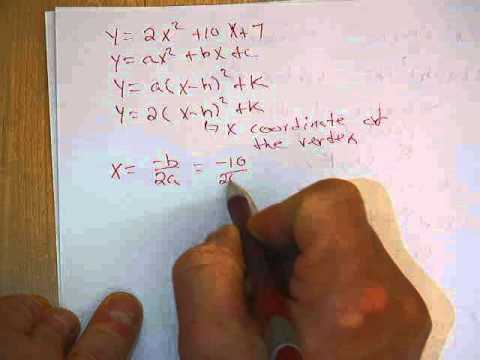 y = 2x² + 10x + 7
y = ax² + bx + c
y = a(x-h)² + k
y = 2(x-h)² + k
↳ x coordinate of
the vertex
x = -b/2a = -10/2(